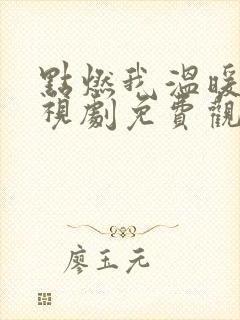 點燃我溫暖
視劇免費觀
廖玉元